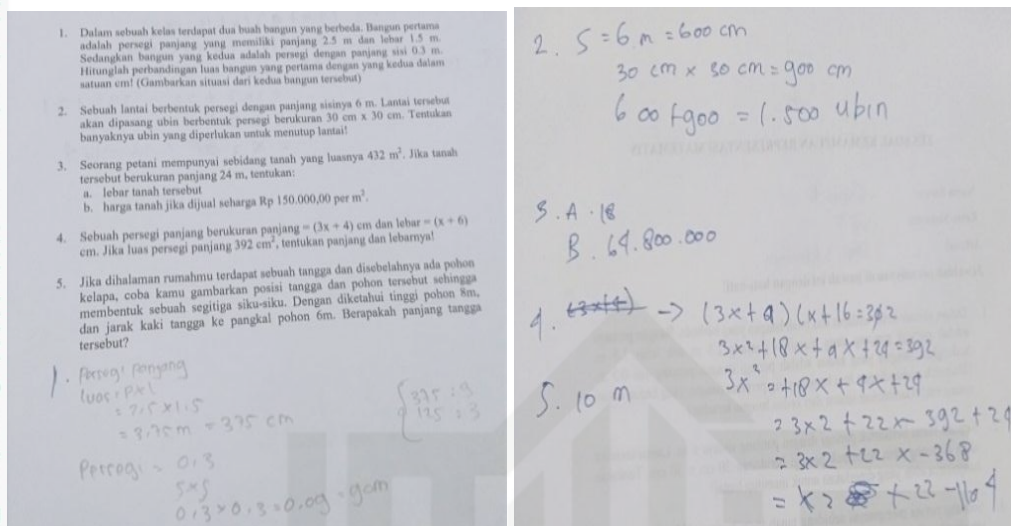 1. Dalam sebuah kelas terdapat dua buah bangun yang berbeda. Bangun pertama
adalah persegi panjang yang memiliki panjang 2.5 m dan lebar 1.5 m.
Sedangkan bangun yang kedua adalah persegi dengan panjang sisi 0.3 m.
Hitunglah perbandingan luas bangun yang pertama dengan yang kedua dalam
satuan cm! (Gambarkan situasi dari kedua bangun tersebut)
2. Sebuah lantai berbentuk persegi dengan panjang sisinya 6 m. Lantai tersebut
akan dipasang ubin berbentuk persegi berukuran 30 cm x 30 cm. Tentukan
banyaknya ubin yang diperlukan untuk menutup lantai!
3. Seorang petani mempunyai sebidang tanah yang luasnya 432 m². Jika tanah
tersebut berukuran panjang 24 m, tentukan:
a. lebar tanah tersebut
b. harga tanah jika dijual seharga Rp 150.000,00 per m².
4. Sebuah persegi panjang berukuran panjang = (3x + 4) cm dan lebar = (x + 6)
cm. Jika luas persegi panjang 392 cm², tentukan panjang dan lebarnya!
5. Jika dihalaman rumahmu terdapat sebuah tangga dan disebelahnya ada pohon
kelapa, coba kamu gambarkan posisi tangga dan pohon tersebut sehingga
membentuk sebuah segitiga siku-siku. Dengan diketahui tinggi pohon 8m,
dan jarak kaki tangga ke pangkal pohon 6m. Berapakah panjang tangga
tersebut?
1. Persegi Panjang
luas = P×l
= 2,5 × 1.5
= 3,75 m = 375 cm
375 : 3
125 : 3
Persegi = 0,3
s×s
0,3 × 0,3 = 0,09 = 9 cm
2. S = 6 m = 600 cm
30 cm × 30 cm = 900 cm
600 + 900 = 1.500 ubin
3. A. 18
B. 64.800.000
4. (3x+4) → (3x+4) (x+16 = 392
3x²+18x+4x+24 = 392
3x² = +18x + 4x + 24
= 3x2 + 22x - 392 + 24
= 3x2 + 22x - 368
= x2 + 22 - 1104
5. 10 m